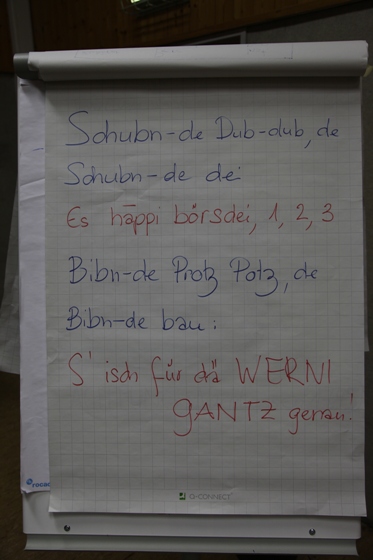 Schubn-de Dub-dub, de
Schubn-de dei
Es häppi börsdei, 1, 2, 3
Bibn-de Protz Potz, de
Bibn-de bau:
S' isch für dä WERNI
GANTZ genau!
Q-CONNECT